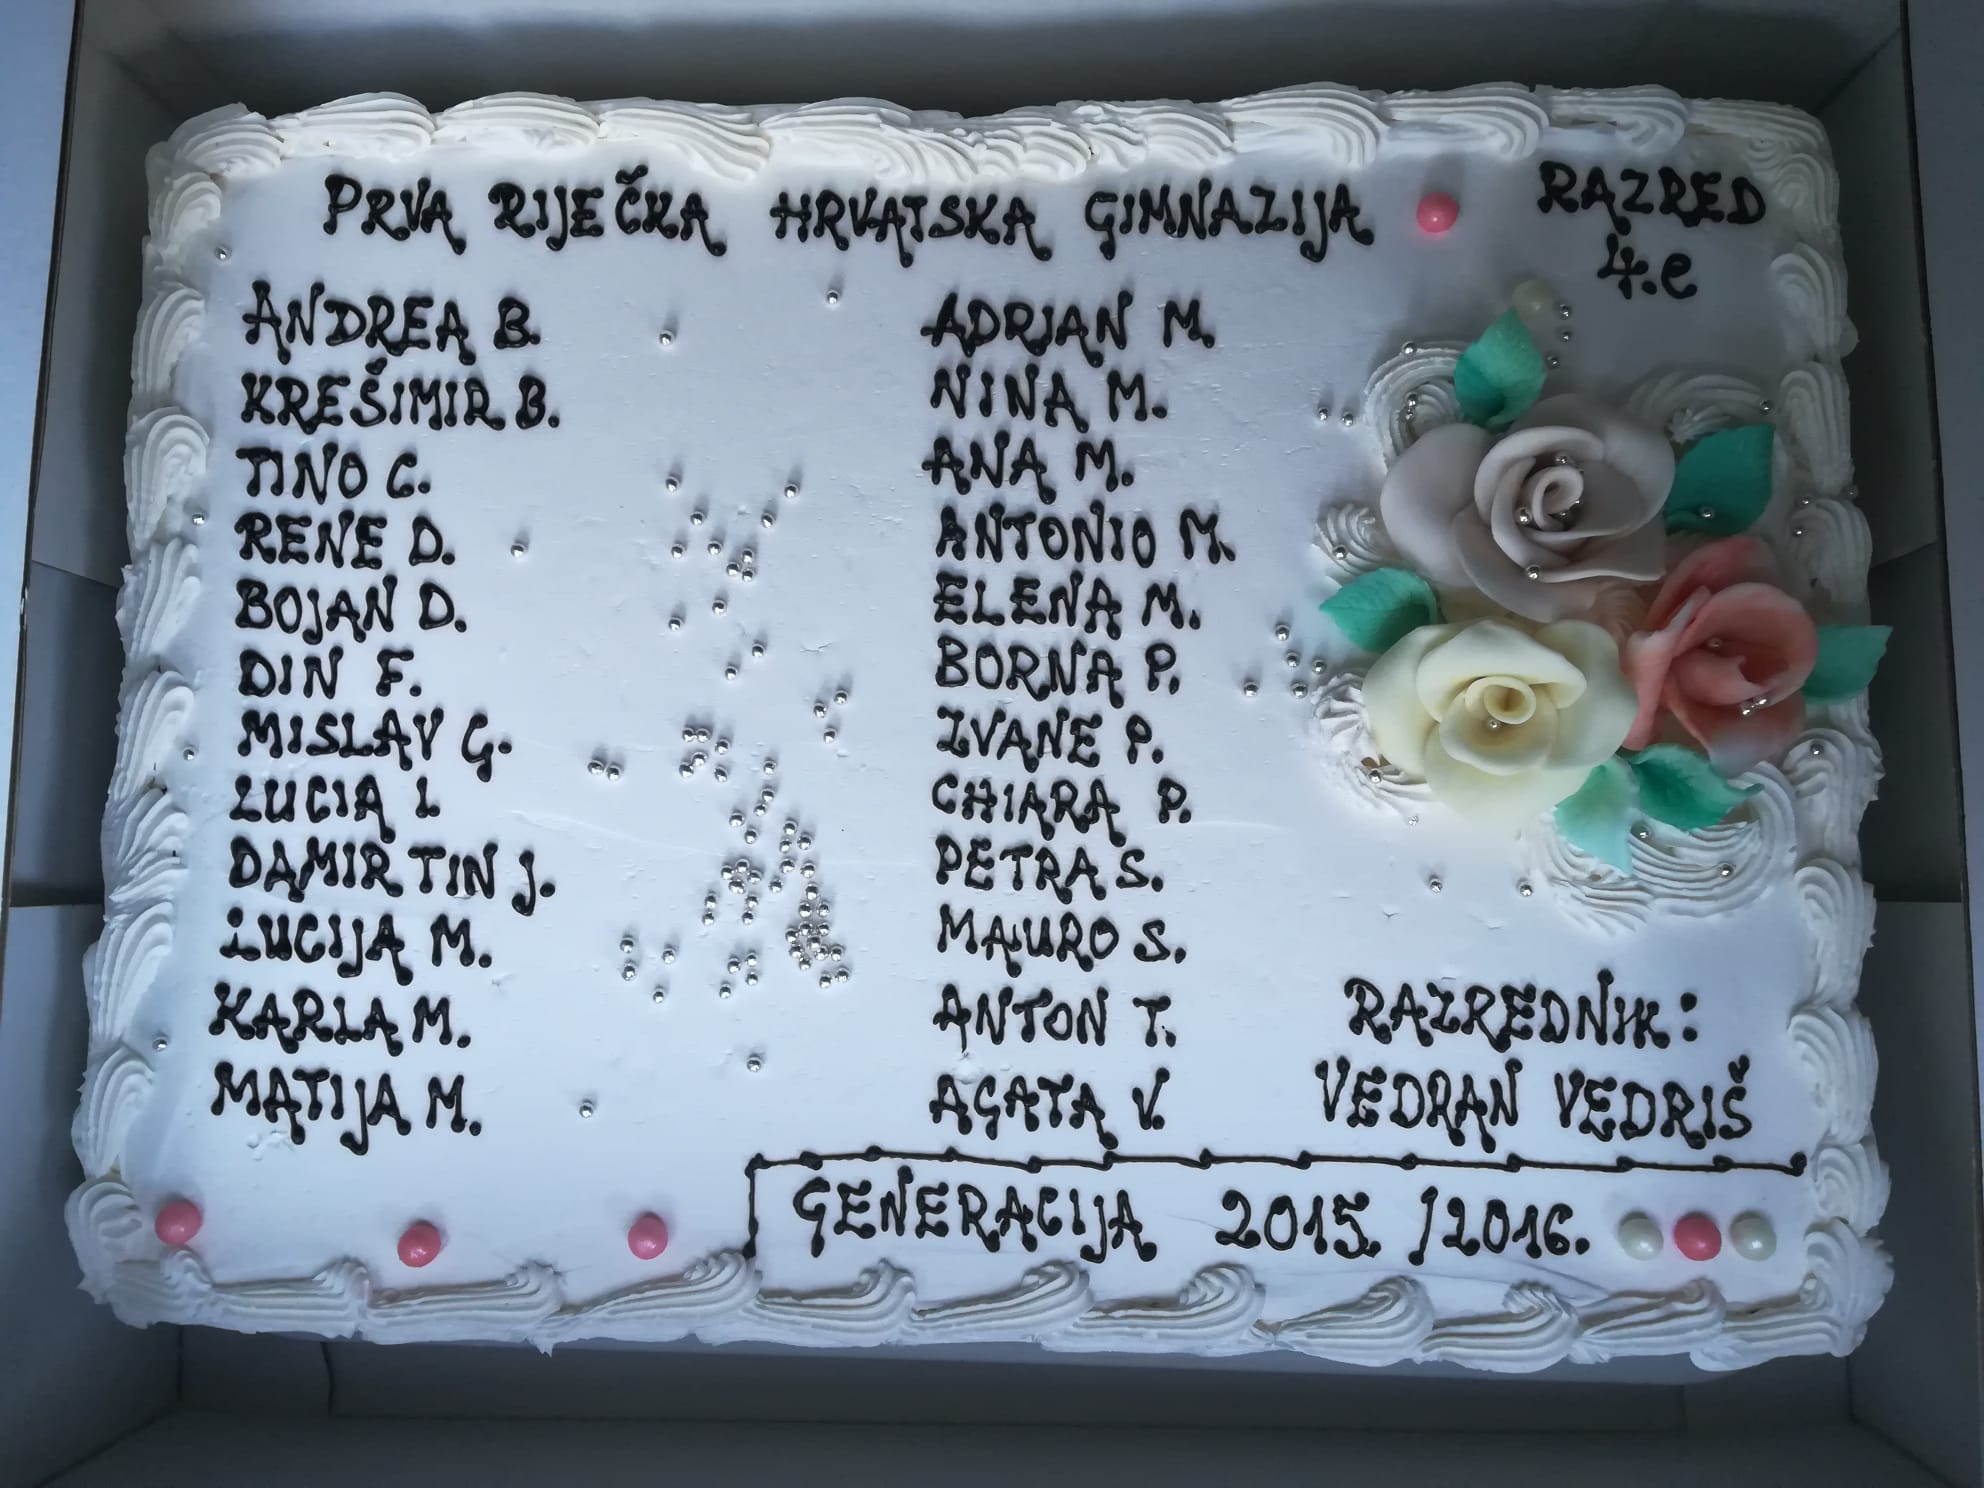 PRVA RIJEČKA HRVATSKA GIMNAZIJA
RAZRED
4.e
ANDREA B.
KREŠIMIR B.
TINO C.
RENE D.
BOJAN D.
DIN F.
MISLAV G.
LUCIA I.
DAMIR TIN J.
LUCIJA M.
KARLA M.
MATIJA M.
ADRIAN M.
NINA M.
ANA M.
ANTONIO M.
ELENA M.
BORNA P.
IVANE P.
CHIARA P.
PETRA S.
MAURO S.
ANTON T.
AGATA V.
RAZREDNIK:
VEDRAN VEDRIŠ
GENERACIJA 2015. /2016.